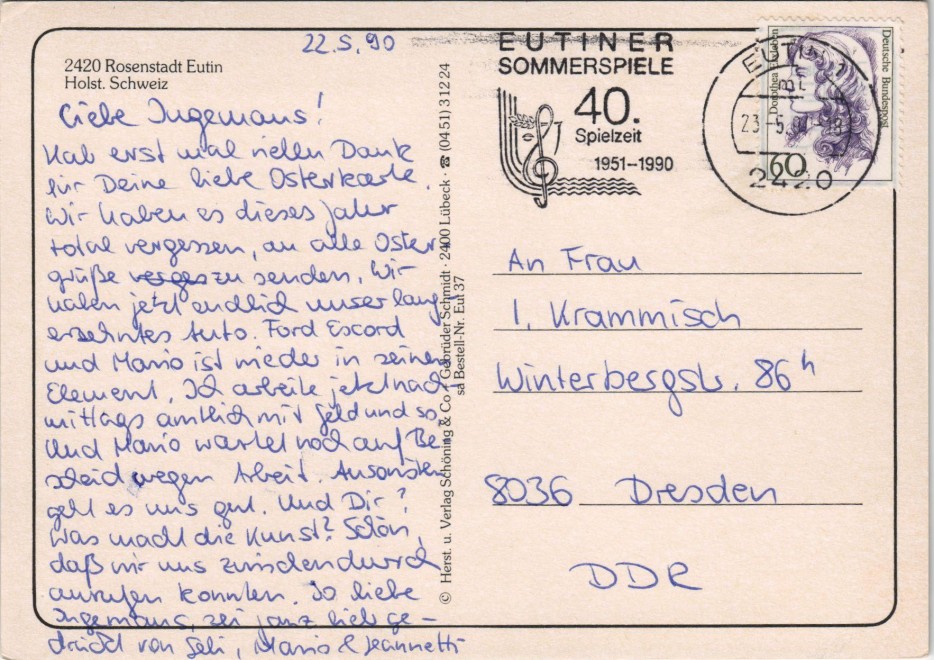 22.5.90
2420 Rosenstadt Eutin
Holst. Schweiz
Liebe Ingemaus!
Hab erst mal vielen Dank
für Deine liebe Osterkarte.
Wir haben es dieses Jahr
total vergessen, an alle Oster
grüße verges zu senden. Wir
haben jetzt endlich unser lang
ersehntes Auto. Ford Escord
und Mario ist wieder in seinem
Element. Ich arbeite jetzt nach
mittags amtlich mit Geld und so.
Und Mario wartet noch auf Be
scheid wegen Arbeit. Ansonsten
geht es uns gut. Und Dir?
Was macht die Kunst? Schön,
daß wir uns zwischendurch
anrufen konnten. So liebe
Ingemaus, sei ganz lieb ge-
drückt von Geli, Mario & Jeannette
© Herst. u. Verlag Schöning & Co + Gebrüder Schmidt · 2400 Lübeck · ☎ (0451) 31224
sa Bestell-Nr. Eut 37
EUTINER
SOMMERSPIELE
40.
Spielzeit
1951–1990
EUTIN 1
23.-5.
2420
Deutsche Bundespost
Dorothea Erxleben
60
An Frau
I. Krammisch
Winterbergstr. 86h
8036 Dresden
DDR